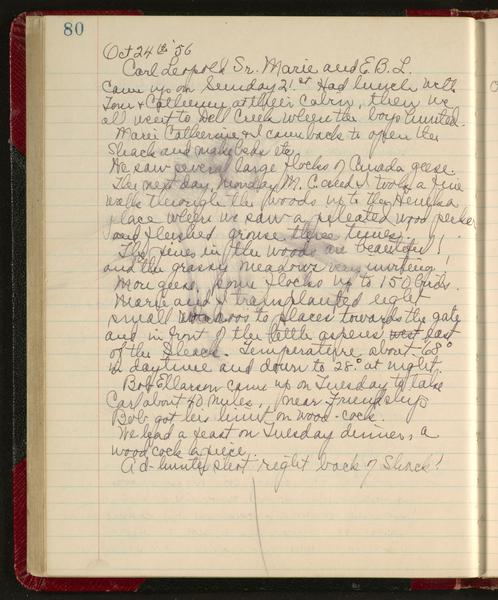 80
Oct 24th '56
Carl Leopold Sr. Marie and E.B.L.
came up on Sunday 21st Had lunch with
Tom & Catherine at their cabin, then we
all went to Dell Creek where the boys hunted.
Marie Catherine & I came back to open the
Shack and make beds etc.
We saw several large flocks of Canada geese.
The next day, Monday, M. C. and I took a fine
walk through the woods up to the
place where we saw a pileated wood pecker
and flushed grouse three times.
The pines in the woods are beautiful!
and the grassy meadows very inviting!
More geese, some flocks up to 150 birds.
Marie and I transplanted eight
small to places towards the gate
and in front of the little aspens, west east
of the Shack. Temperature about 68°
in daytime and down to 28° at night.
Bob Ellarson came up on Tuesday to take
Carl about 40 miles, near Friendship
Bob got his limit on wood-cock.
We had a feast on Tuesday dinner, a
woodcock apiece.
A d- hunter shot right back of Shack!